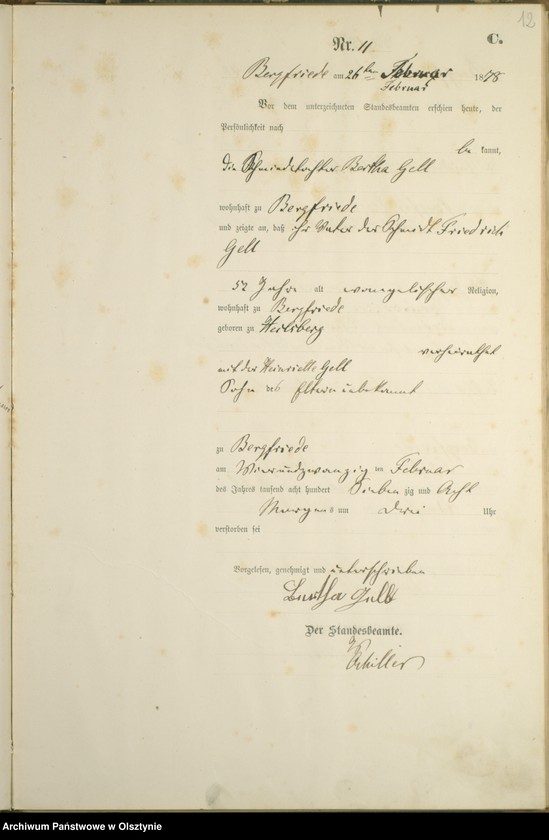 12
Nr. 11 C.
Bergfriede am 26ten Februar 1878
Februar
Vor dem unterzeichneten Standesbeamten erschien heute, der
Persönlichkeit nach
be kannt,
die Schmiedetochter Bertha Gell
wohnhaft zu Bergfriede
und zeigte an, daß ihr Vater der Schmidt Friedrich
Gell
52 Jahre alt evangelischer Religion,
wohnhaft zu Bergfriede
geboren zu
verheirathet
mit der Heinriette Gell
Sohn des Eltern unbekannt
zu Bergfriede
am Vierundzwanzig ten Februar
des Jahres tausend acht hundert Sieben zig und Acht
Morgens um Drei Uhr
verstorben sei
Vorgelesen, genehmigt und unterschrieben
Bertha Gell
Der Standesbeamte.
Schiller
Archiwum Państwowe w Olsztynie